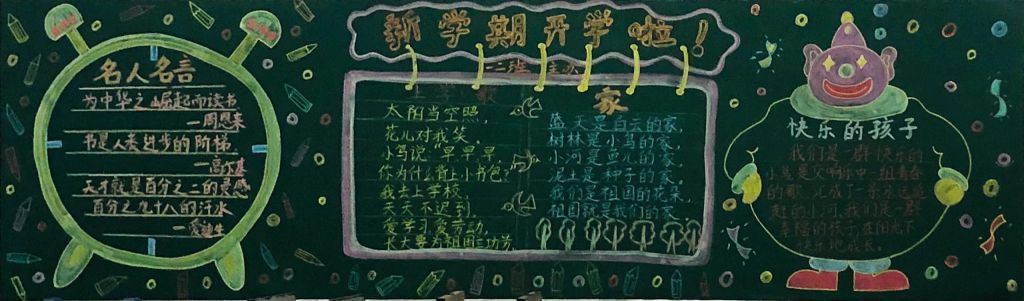 新学期开学啦！
二班 主办
名人名言
为中华之崛起而读书
—周恩来
书是人类进步的阶梯
—高尔基
天才就是百分之二的灵感
百分之九十八的汗水
—爱迪生
太阳当空照，
花儿对我笑，
小鸟说：早早早
你为什么背上小书包？
我去上学校
天天不迟到，
爱学习爱劳动，
长大要为祖国立功劳
家
蓝天是白云的家，
树林是小鸟的家，
小河是鱼儿的家，
泥土是种子的家，
我们是祖国的花朵，
祖国就是我们的家
快乐的孩子
我们是一群快乐的
小鸟是父
的歌
的小河，我们是一群
幸福的孩子在阳光下
快乐地成长。